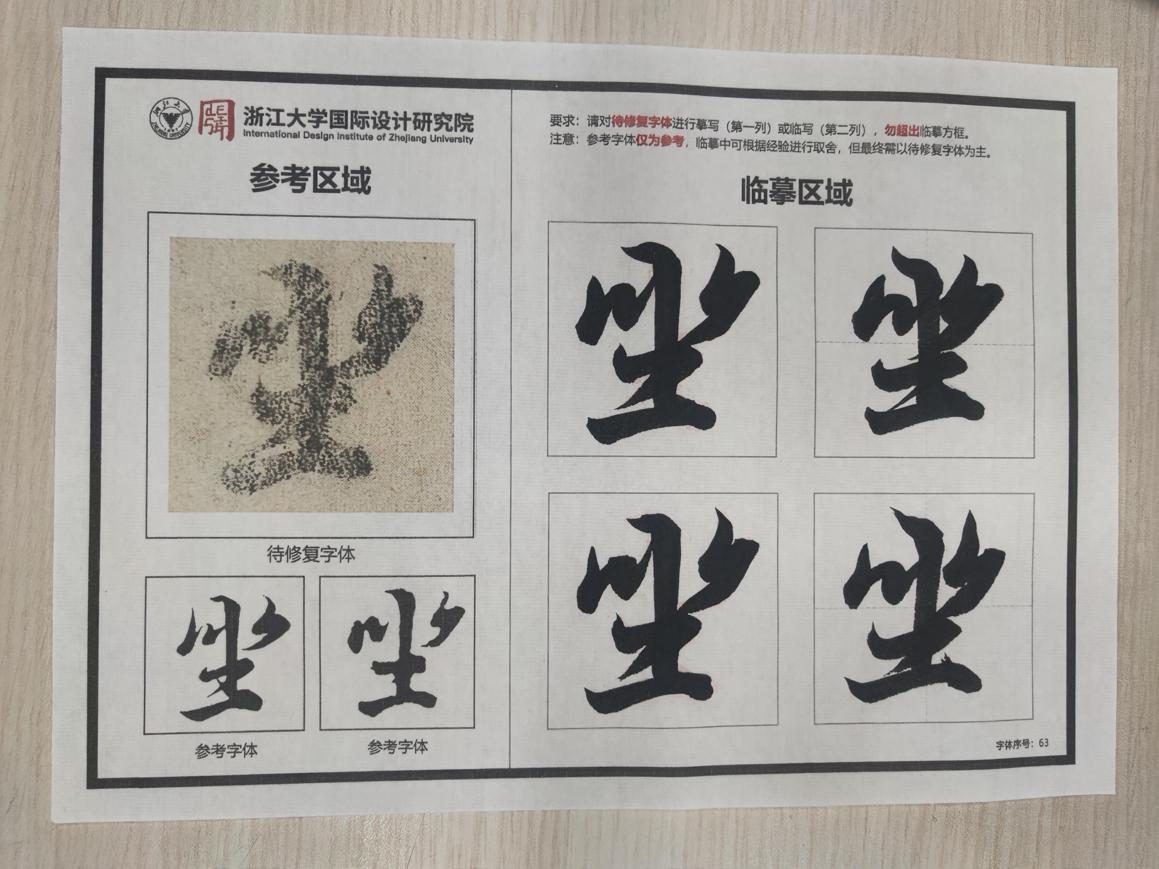 浙江大学国际设计研究院
International Design Institute of Zhejiang University
参考区域
坐
待修复字体
坐 坐
参考字体 参考字体
要求：请对待修复字体进行摹写（第一列）或临写（第二列），勿超出临摹方框。
注意：参考字体仅为参考，临摹中可根据经验进行取舍，但最终需以待修复字体为主。
临摹区域
坐 坐
坐 坐
字体序号：63